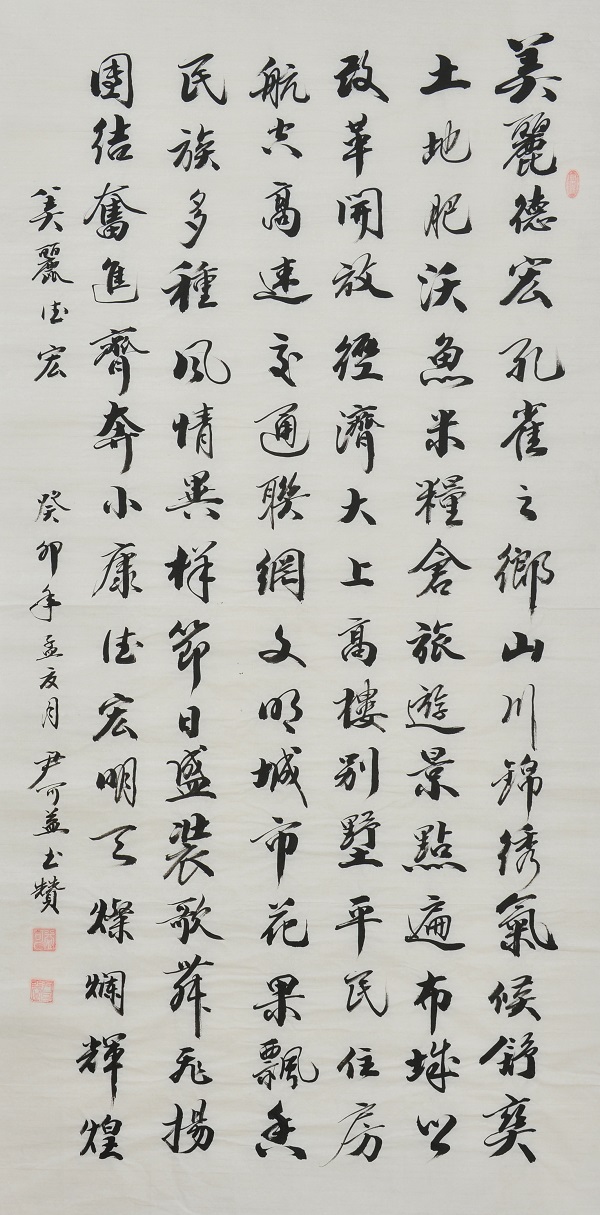 美麗德宏孔雀之鄉山川錦綉氣候舒爽
土地肥沃魚米糧倉旅遊景點遍布城鄉
改革開放經濟大上高樓別墅平民住房
航空高速交通聯網文明城市花果飄香
民族多種風情異樣節日盛裝歌舞飛揚
團結奮進齊奔小康德宏明天燦爛輝煌
美麗德宏 癸卯年孟夏月尹可益書贊